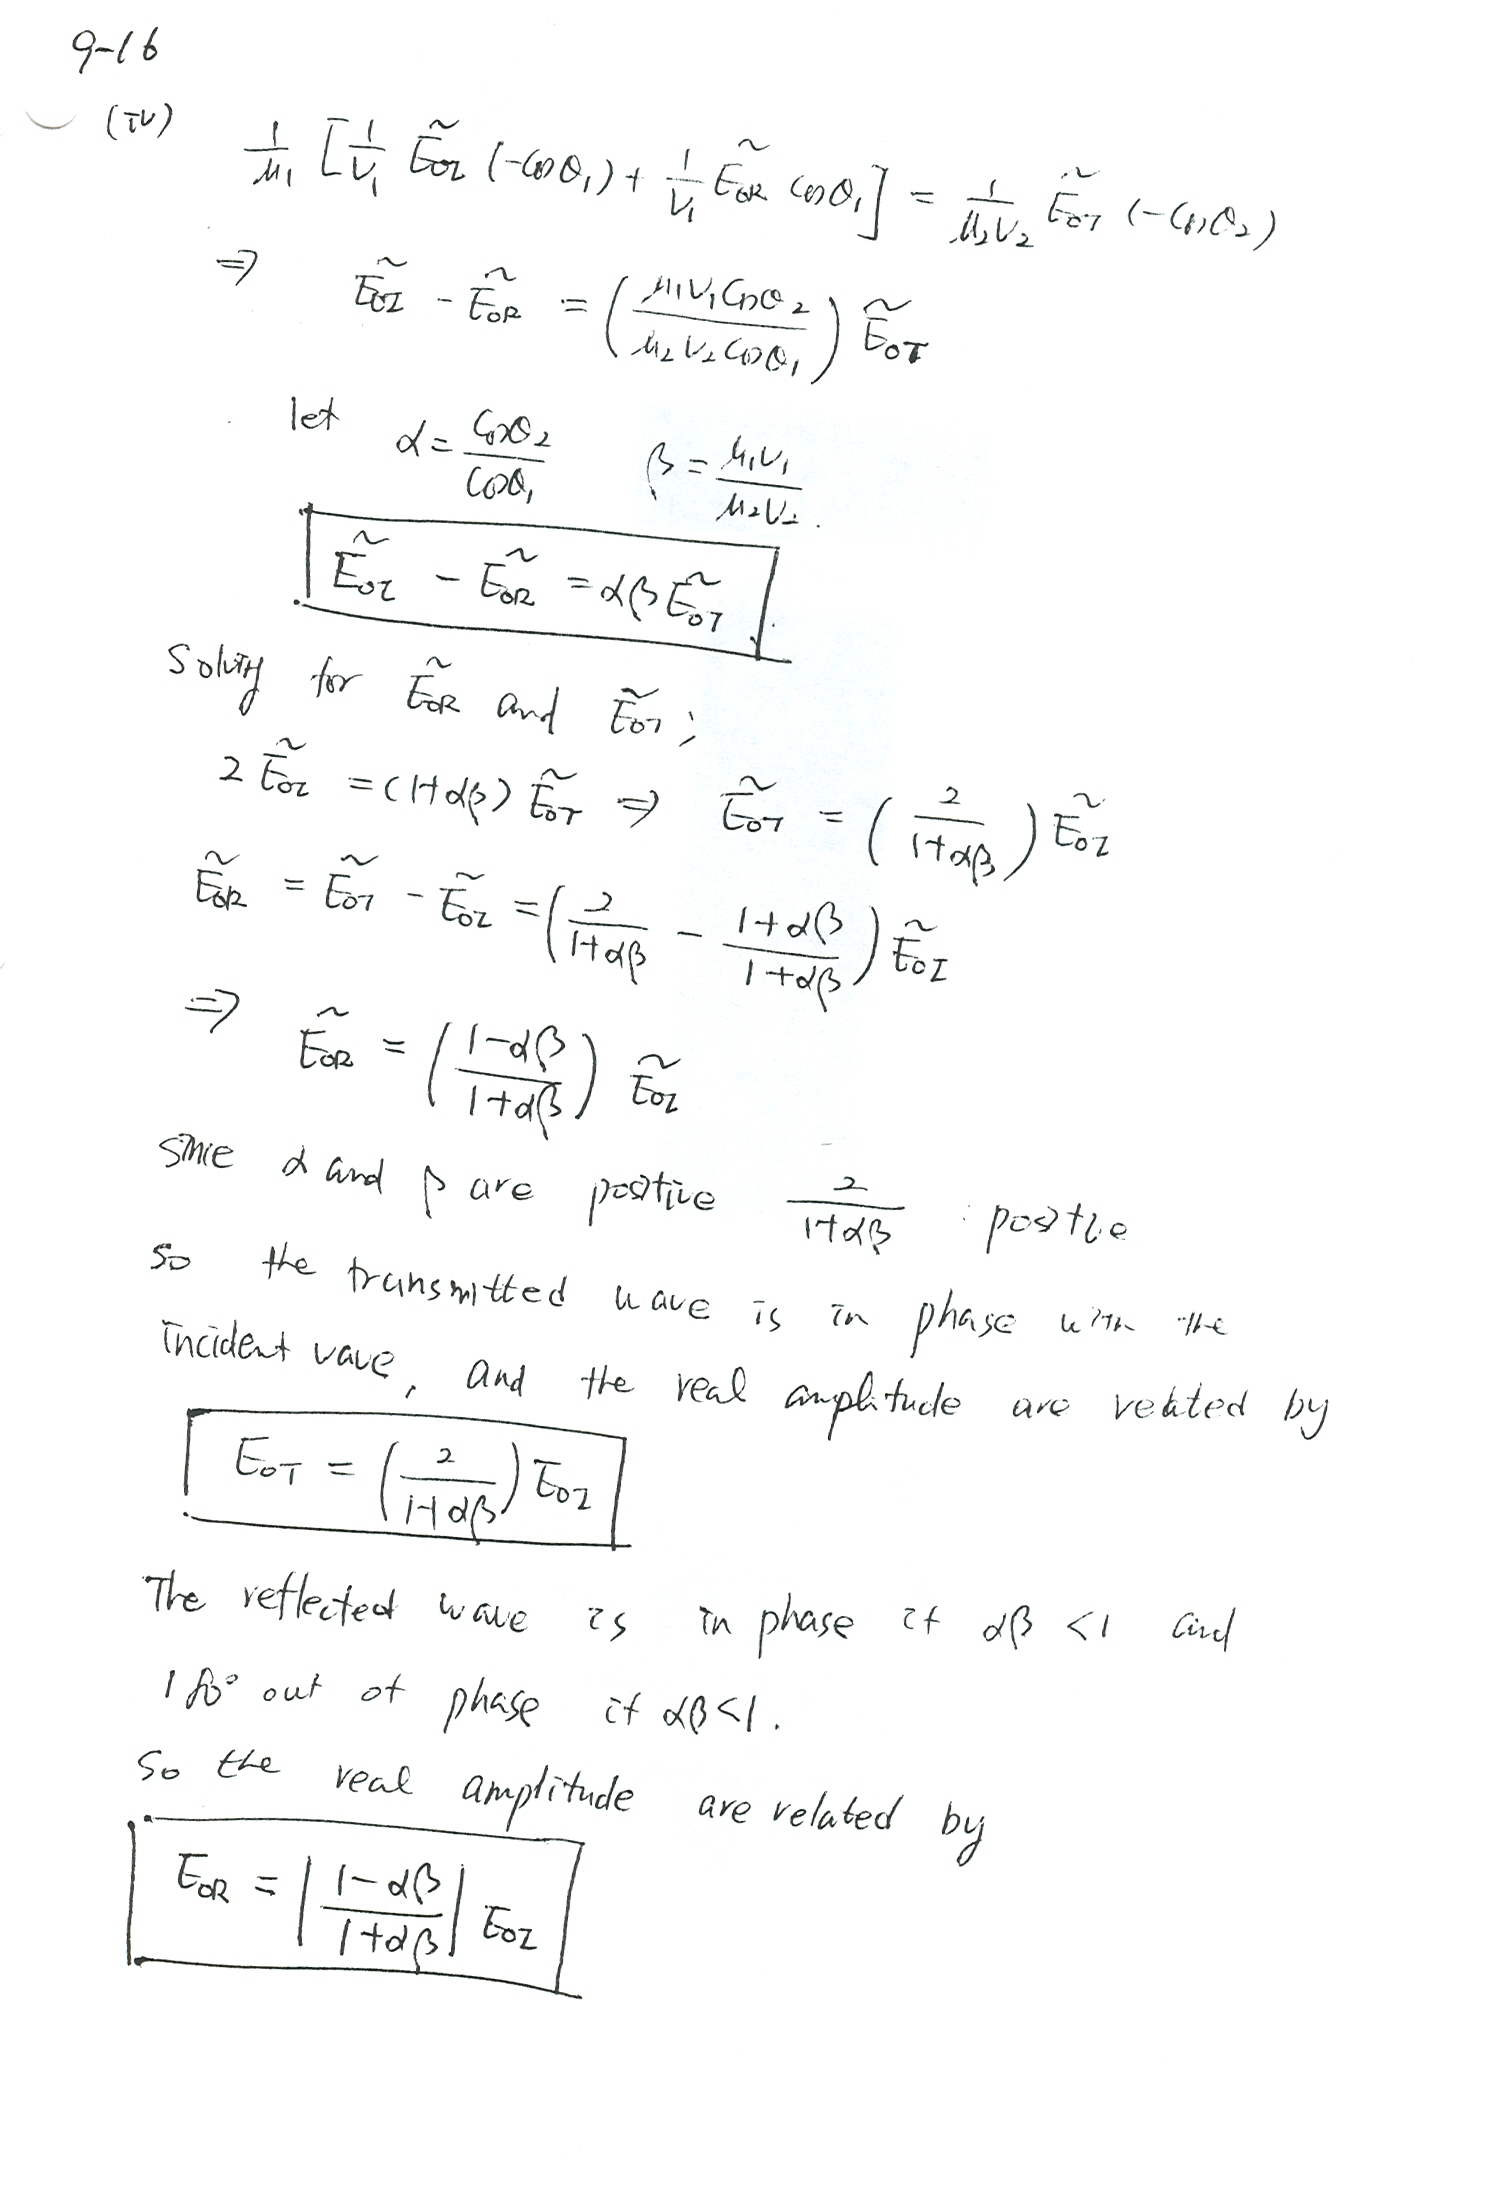 9-16
(iv)
1/μ₁ [1/v₁ Ẽ₀I (-cosθ₁) + 1/v₁ Ẽ₀R cosθ₁] = 1/μ₂v₂ Ẽ₀T (-cosθ₂)
⇒ Ẽ₀I - Ẽ₀R = (μ₁v₁cosθ₂ / μ₂v₂cosθ₁) Ẽ₀T
let α = cosθ₂/cosθ₁ β = μ₁v₁/μ₂v₂.
Ẽ₀I - Ẽ₀R = αβ Ẽ₀T
Solving for Ẽ₀R and Ẽ₀T;
2Ẽ₀I = (1+αβ) Ẽ₀T ⇒ Ẽ₀T = (2/(1+αβ)) Ẽ₀I
Ẽ₀R = Ẽ₀T - Ẽ₀I = (2/(1+αβ) - (1+αβ)/(1+αβ)) Ẽ₀I
⇒ Ẽ₀R = ((1-αβ)/(1+αβ)) Ẽ₀I
since α and β are positive 2/(1+αβ) : positive
so the transmitted wave is in phase with the
incident wave, and the real amplitude are related by
E₀T = (2/(1+αβ)) E₀I
The reflected wave is in phase if αβ < 1 and
180° out of phase if αβ<1.
So the real amplitude are related by
E₀R = |(1-αβ)/(1+αβ)| E₀I